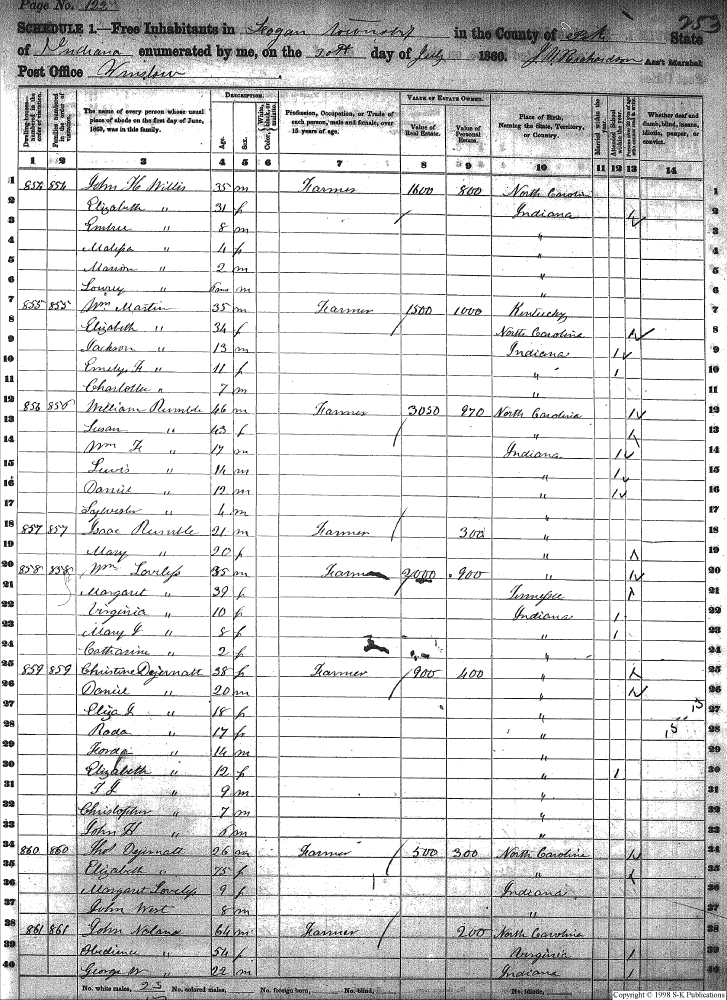 Page No. 122
253
SCHEDULE 1.—Free Inhabitants in Logan Township in the County of Pike State
of Indiana enumerated by me, on the 20th day of July 1860. J W Richardson Ass't Marshal
Post Office Winslow
Dwelling-houses numbered in the order of visitation.
Families numbered in the order of visitation.
The name of every person whose usual place of abode on the first day of June, 1860, was in this family.
DESCRIPTION.
Age.
Sex.
Profession, Occupation, or Trade of each person, male and female, over 15 years of age.
VALUE OF ESTATE OWNED.
Value of Real Estate.
Value of Personal Estate.
Place of Birth, Naming the State, Territory, or Country.
Married within the year.
Attended School within the year.
Whether deaf and dumb, blind, insane, idiotic, pauper, or convict.
1 2 3 4 5 6 7 8 9 10 11 12 13 14
1 854 854 John H Willis 35 m Farmer 1600 800 North Carolin 1
2 Elizabeth " 31 f Indiana 2
3 Embree " 8 m " 3
4 Malissa " 4 f " 4
5 Marion " 2 m " 5
6 Lowry " 6ms m " 6
7 855 855 Wm Martin 35 m Farmer 1500 1000 Kentucky 7
8 Elizabeth " 34 f North Carolina 8
9 Jackson " 13 m Indiana 1 9
10 Emely F " 11 f " 1 10
11 Charlotte " 7 m " 11
12 856 856 William Rumble 46 m Farmer 3050 970 North Carolina 12
13 Susan " 43 f " 13
14 Wm F " 17 m Indiana 1 14
15 Lewis " 14 m " 1 15
16 Daniel " 12 m " 1 16
17 Sylvester " 4 m " 17
18 857 857 Isaac Rumble 21 m Farmer 300 " 18
19 Mary " 20 f " 19
20 858 858 Wm Loveless 35 m Farmer 2000 900 " 20
21 Margaret " 39 f Tennessee 21
22 Virginia " 10 f Indiana 1 22
23 Mary J " 8 f " 1 23
24 Catharine " 2 f " 24
25 859 859 Christine Dejernatt 38 f Farmer 900 400 " 25
26 Daniel " 20 m " 26
27 Eliza J " 18 f " 27
28 Rada " 17 f " 28
29 " 14 m " 29
30 Elizabeth " 12 f " 1 30
31 " 9 m " 31
32 Christopher " 7 m " 32
33 John H " 6 m " 33
34 860 860 Thos Dejernatt 26 m Farmer 500 300 North Carolina 34
35 Elizabeth " 75 f " 35
36 Margaret Loveless 9 f Indiana 36
37 John West 8 m " 37
38 861 861 John Noland 64 m Farmer 200 North Carolina 38
39 Obedience " 54 f Virginia 1 39
40 George W " 22 m Indiana 1 40
No. white males, 23 No. colored males, No. foreign born, No. blind, No. idiotic,
Copyright © 1998 S-K Publications